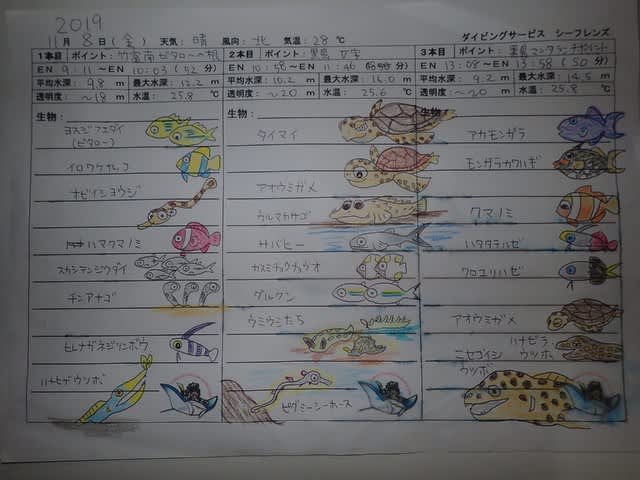 2019
11月 8日(金) 天気: 晴 風向: 北 気温: 28℃ ダイビングサービス シーフレンズ
1本目 ポイント: 竹富南ビタローの根
EN 9:11～EN 10:03 (52分)
平均水深: 9.8 m 最大水深: 12.2 m
透明度: ～18 m 水温: 25.8 ℃
生物:
ヨスジフエダイ
(ビタロー)
イロワケガレコ
ナビイショウジ
ハマクマノミ
スカシテンジクダイ
チンアナゴ
ヒレナガネジリンボウ
ハナヒゲウツボ
2本目 ポイント: 黒島
EN 10:58～EN 11:46 (48分)
平均水深: 10.2 m 最大水深: 14.0 m
透明度: ～20 m 水温: 25.6 ℃
生物:
タイマイ
アオウミガメ
ウルマカサゴ
サバヒー
カスミチョウチョウオ
グルクン
ウミウシたち
ピグミーシーホース
3本目 ポイント: 黒島マンタランチポイント
EN 13:08～EN 13:58 (50分)
平均水深: 9.2 m 最大水深: 14.5 m
透明度: ～20 m 水温: 25.8 ℃
生物:
アカモンガラ
モンガラカワハギ
クマノミ
ハタタテハゼ
クロユリハゼ
アオウミガメ
ハナビラ
ウツボ
ニセゴイシ
ウツボ